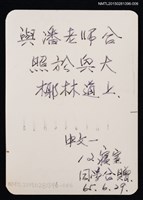 NMTL20150261396-006
與潘老師合
照於與大
椰林道上.
中文一
122寢室
同學合贈
65.6.29.